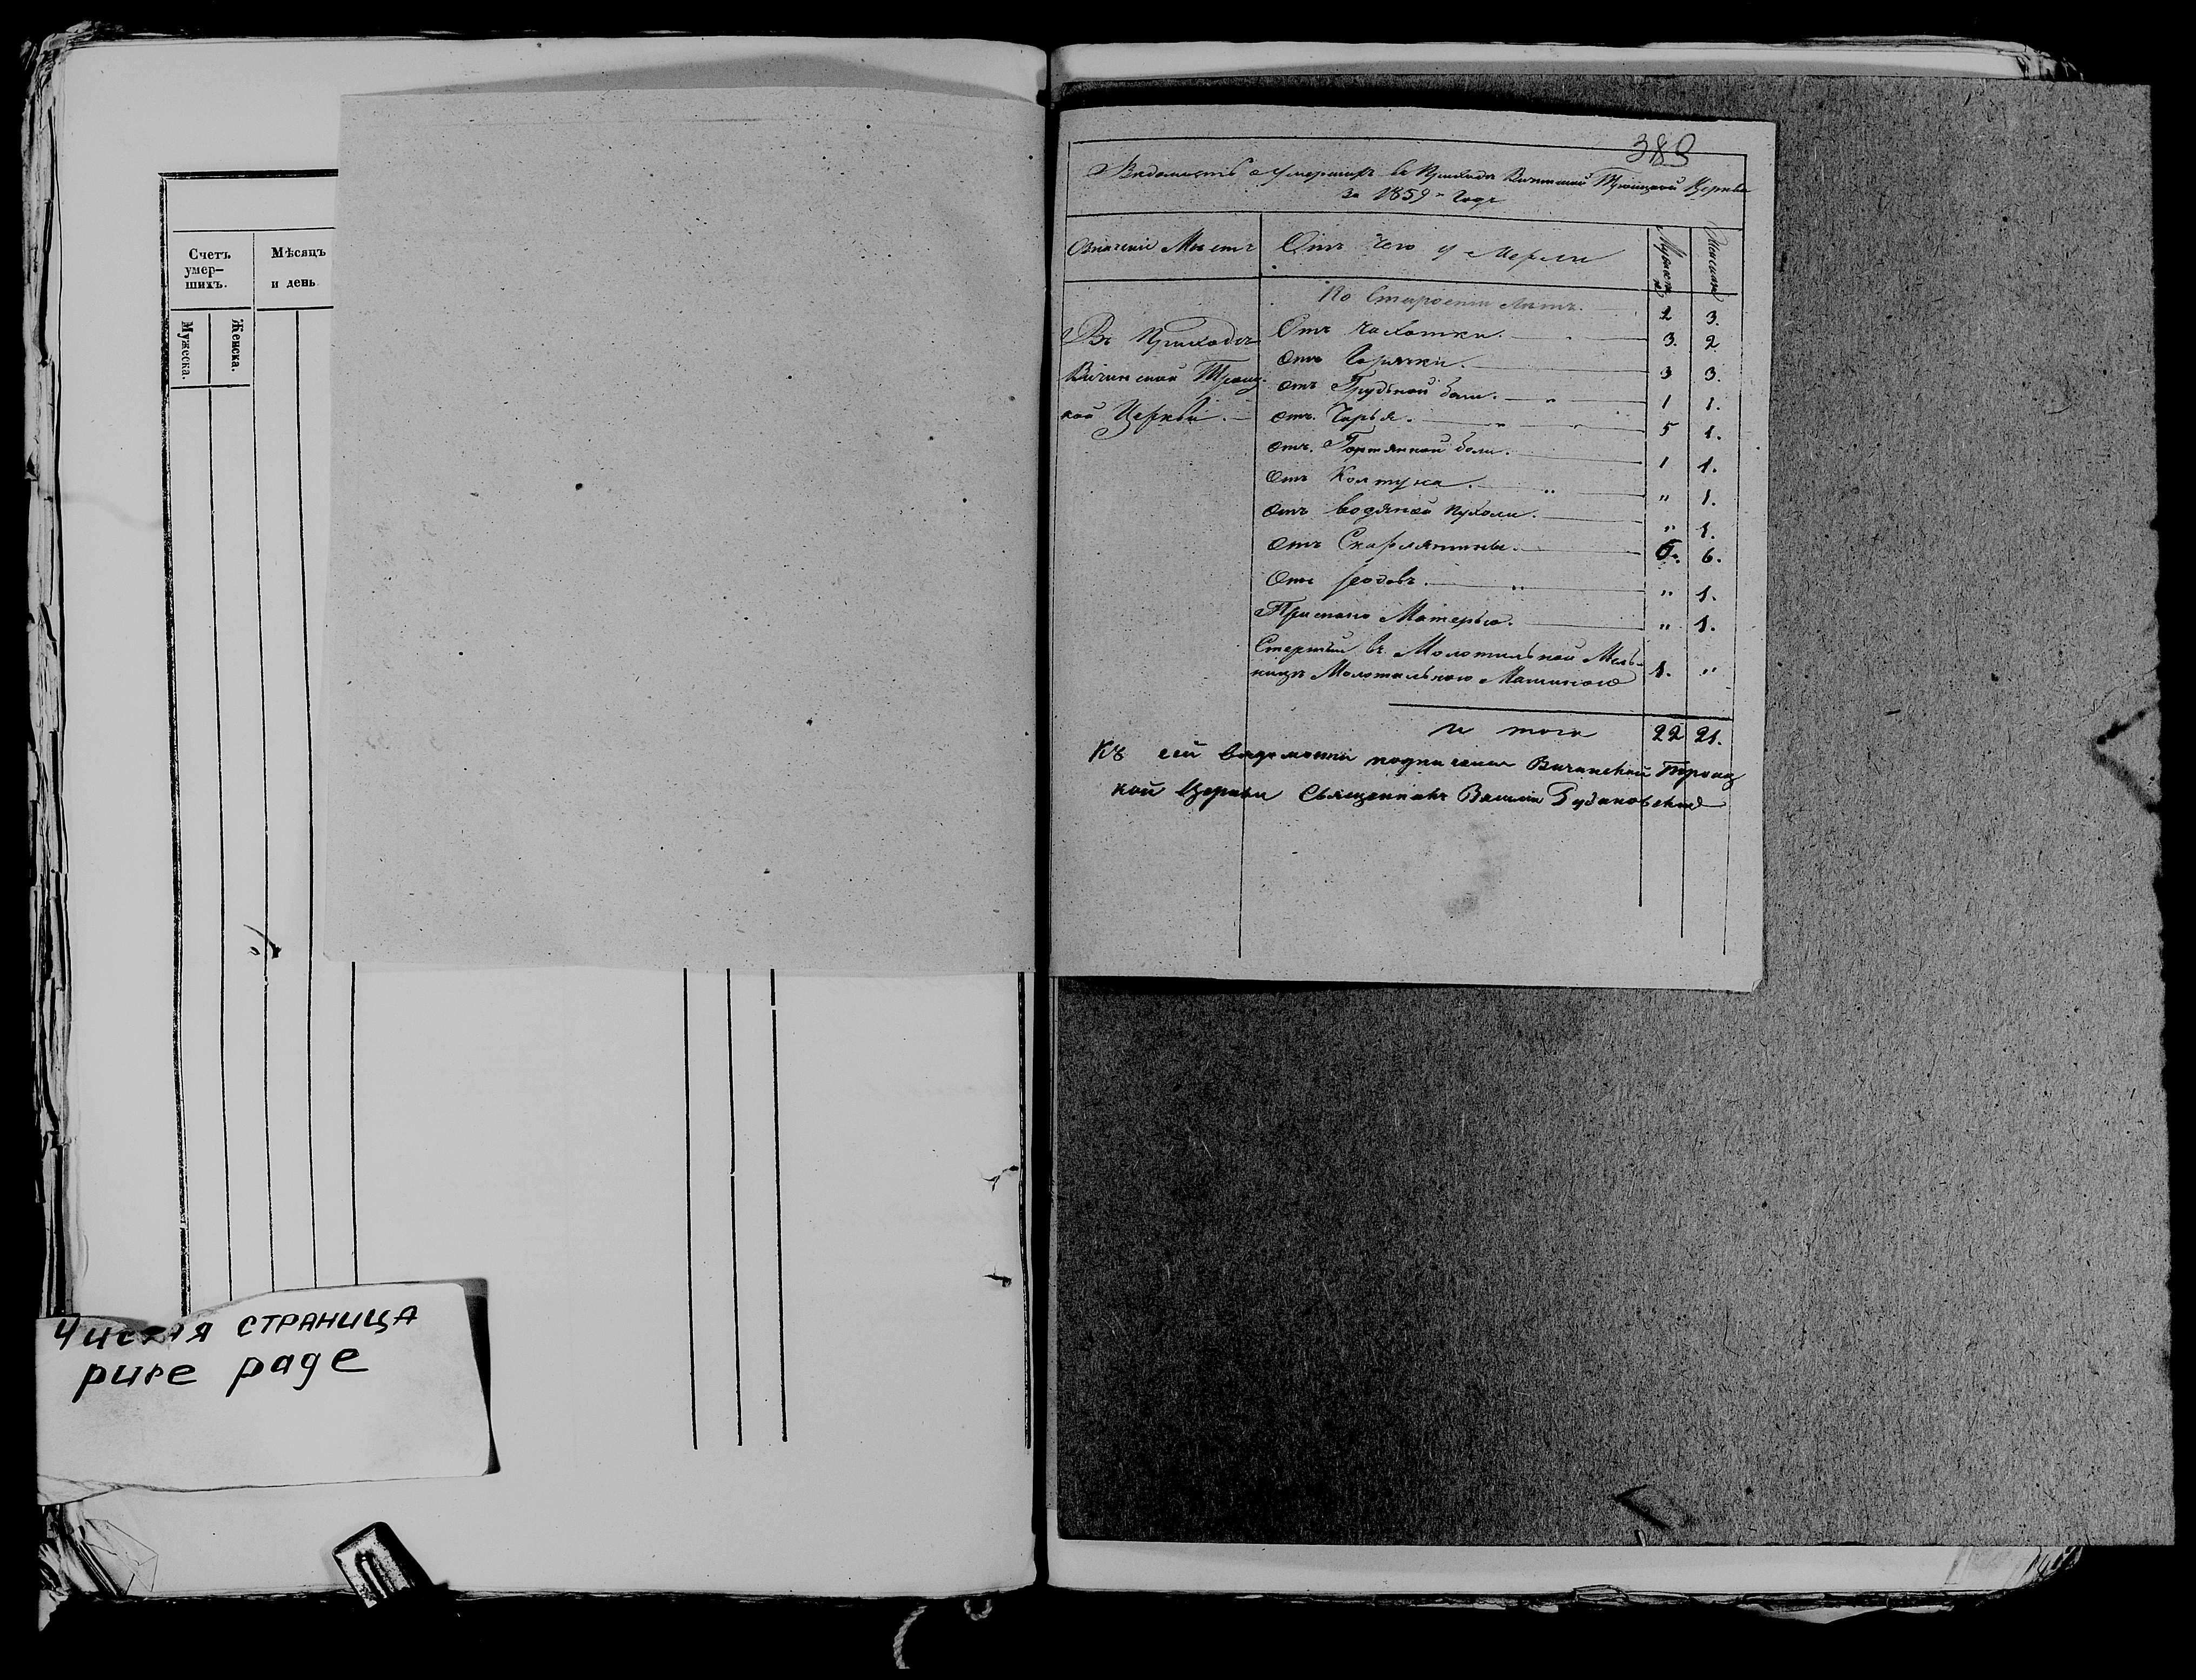 Счетъ
умер-
шихъ.
Мѣсяцъ
и день
Мужеска.
Женска.
Чистая СТРАНИЦА
pure page
389
Вѣдомость о умершихъ въ Приходѣ Вичинской Троицкой Церкви
За 1859 = Годъ
Означеніе Мѣстъ
Отъ чего умерли
Мужеска
Женска
По Старости лѣтъ. 2 3.
Въ Приходѣ
Отъ чахотки. 3. 2
отъ Горячки. 3 3.
Вичинской Троиц-
отъ Грудной боли. 1 1.
кой Церкви. —
отъ Чирья. 5 1.
отъ Гортанной боли. 1 1.
отъ Колтуна. " 1.
отъ водяной пухоли. " 1.
отъ Скарлятины. 6. 6.
отъ родовъ. " 1.
Приспано Матерью. " 1.
въ Молотильной Мель-
ницѣ Молотильною Машиною 1. "
и того 22 21.
Къ сей вѣдомости подписался Вичинской Троиц
кой Церкви Священникъ Василій